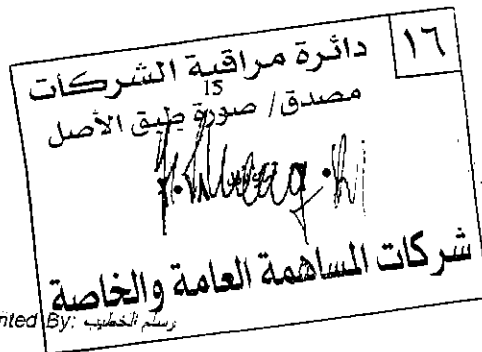 دائرة مراقبة الشركات
١٦
15
مصدق / صورة طبق الأصل
شركات المساهمة العامة والخاصة
nted By: الخطيب